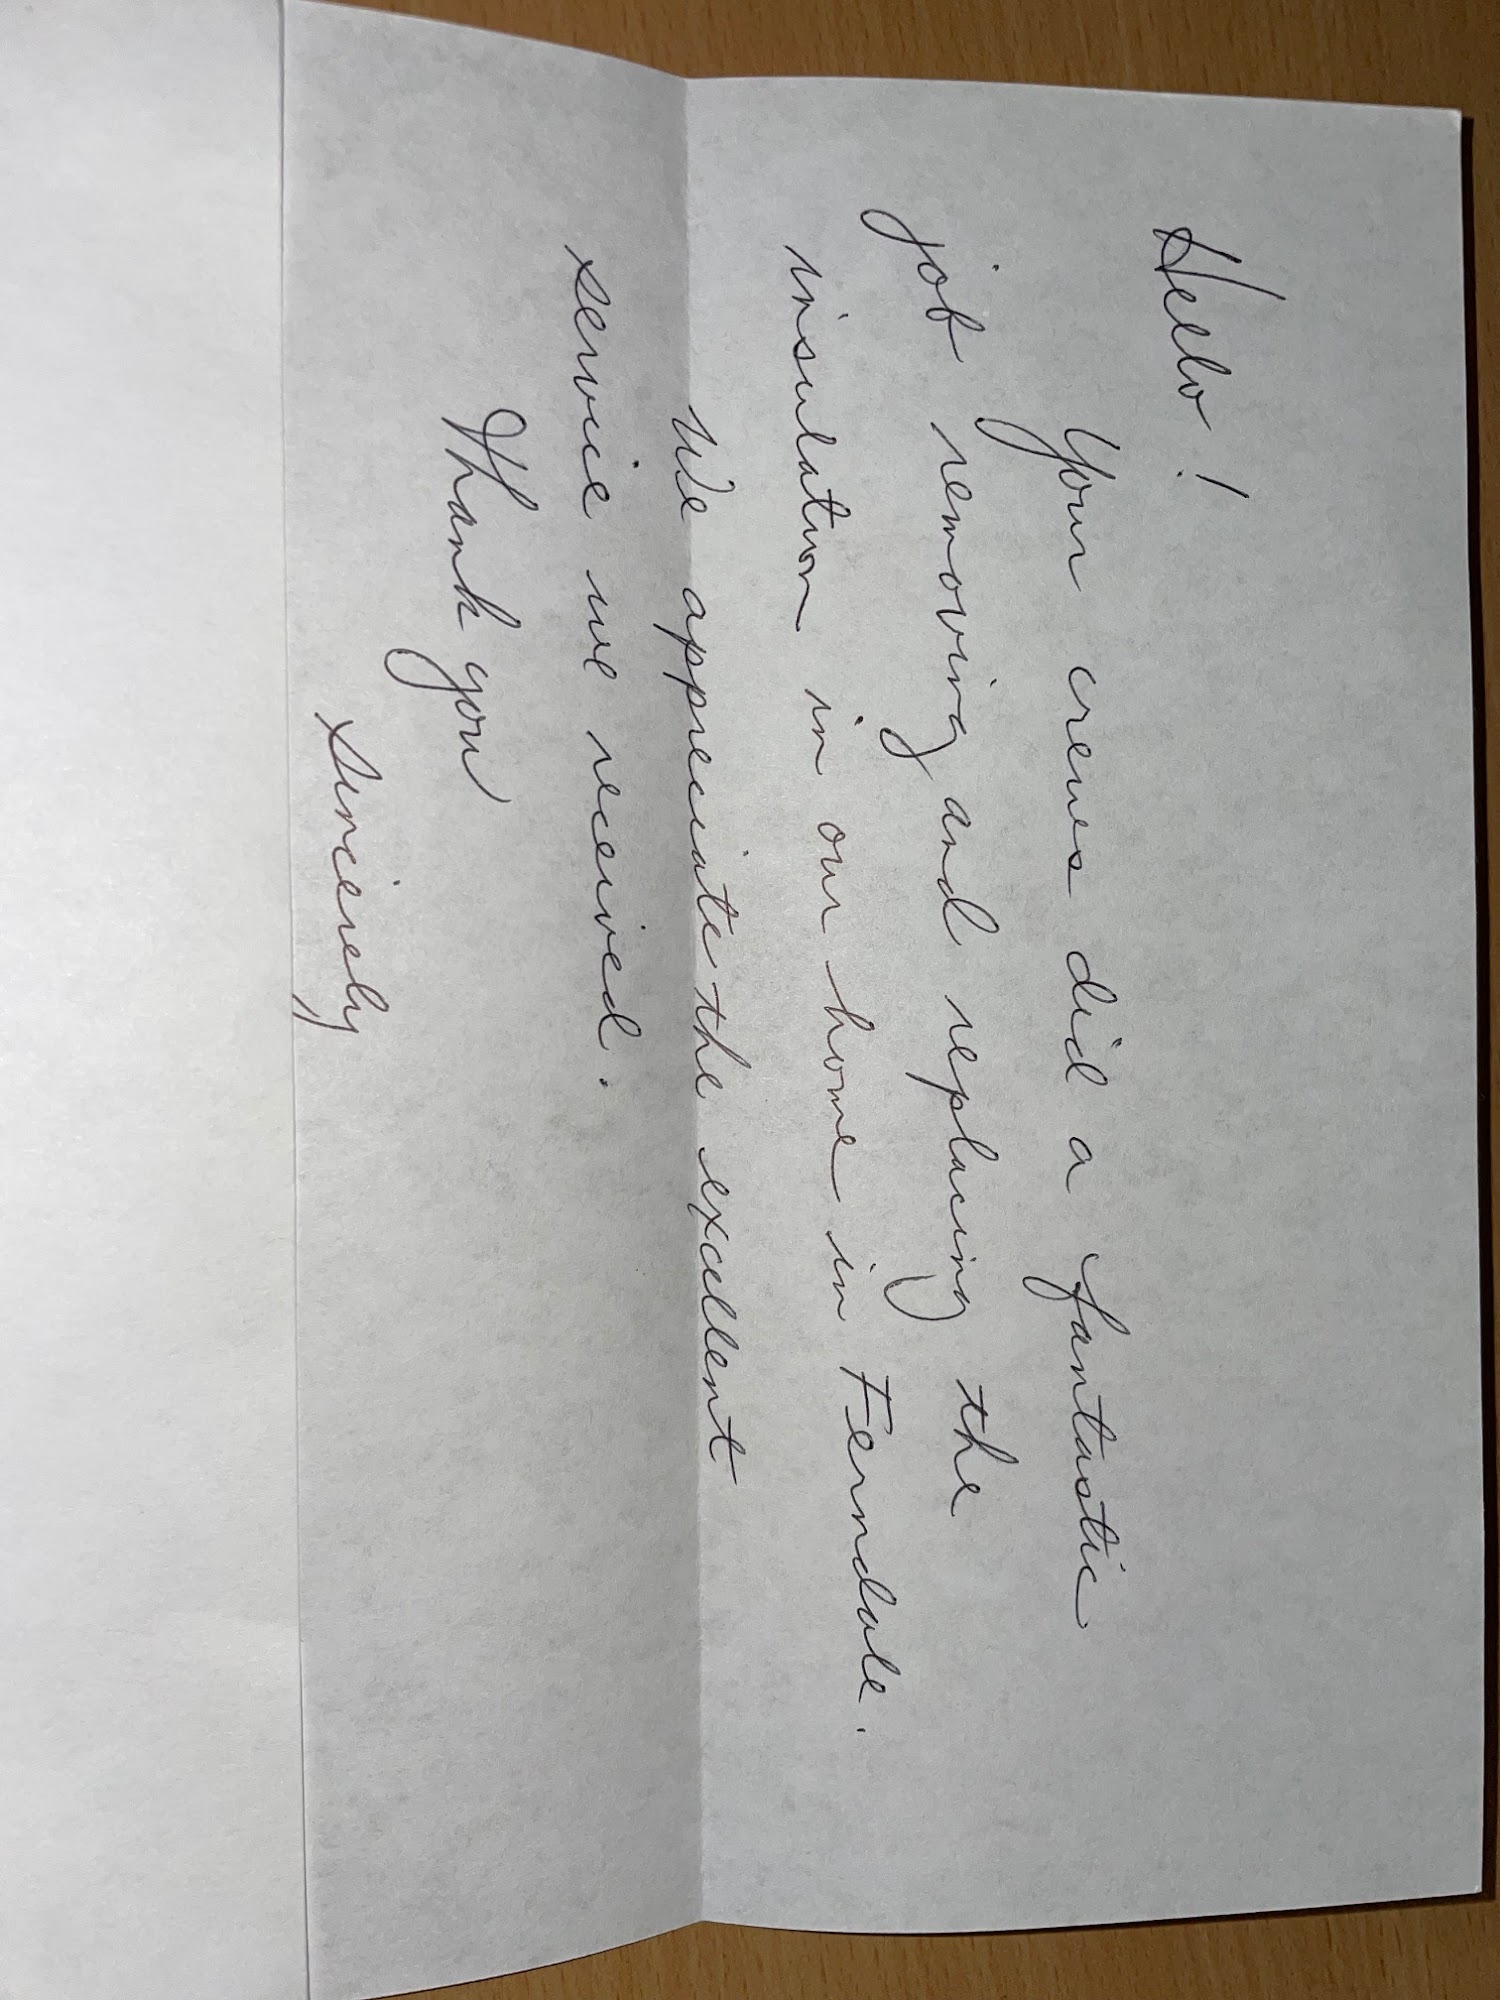 Hello!
Your crews did a fantastic
job removing and replacing the
insulation in our home in Ferndale.
We appreciate the excellent
service we received.
Thank you
Sincerely,